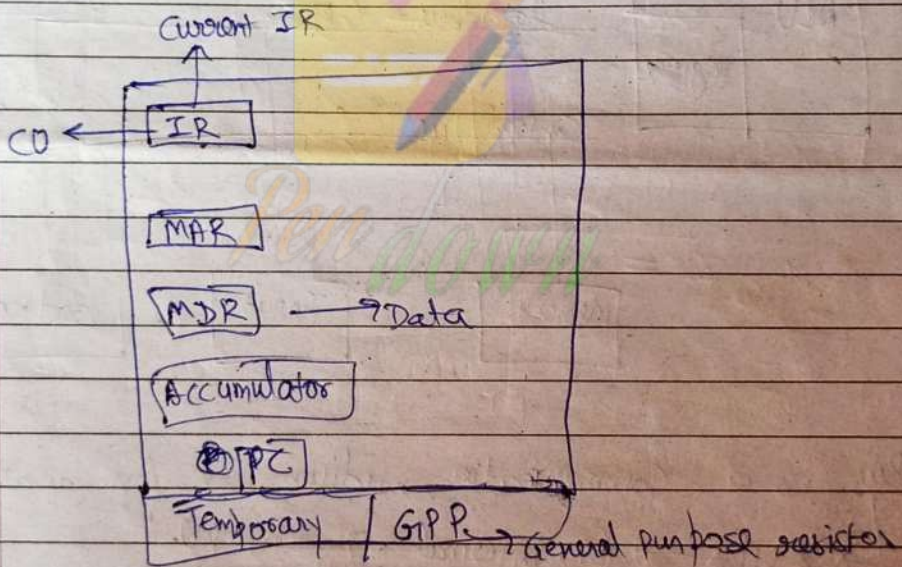 Current IR
CO
IR
MAR
MDR
Data
Accumulator
PC
Temporary
GPP.
General purpose resistor
Pen down